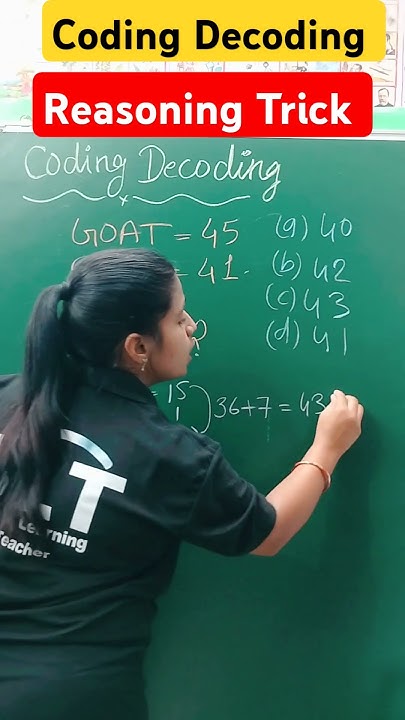 Coding Decoding
Reasoning Trick
Coding Decoding
GOAT = 45 (a) 40
= 41 (b) 42
? (c) 43
(d) 41
= 15
1 ) 36+7 = 43
LT
Learning
Teacher